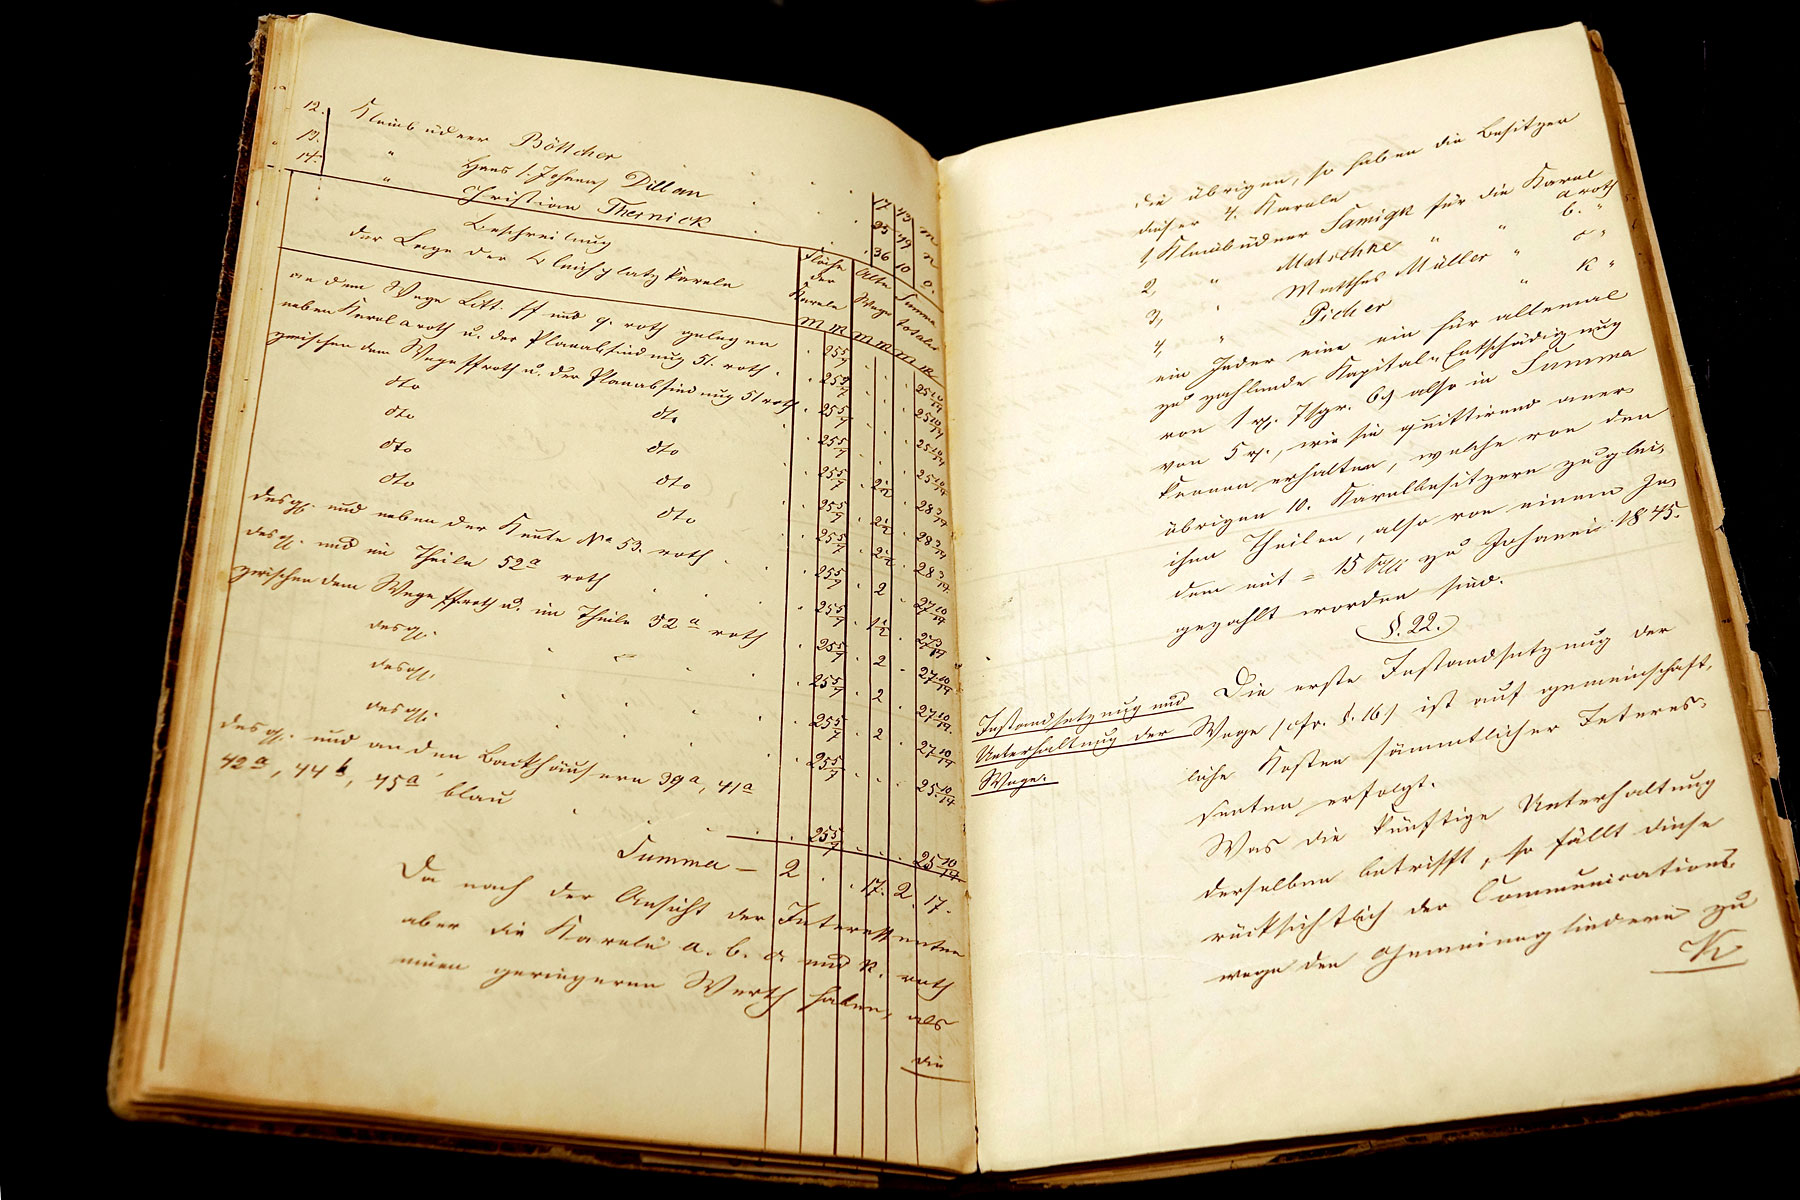 12. Kleinbüdner Böttcher 17 43 m
13. " Hans s. Johann Dillan 25 49 n
14. " Christian Thernick 36 10 o.
Beschreibung
der Lage der Bleichplatzkaveln
Fläche der Kaveln
Alte Wege
Summa totalis
an dem Wege Litt. ff und g. roth gelegen 25 5/7 25 10/14
neben Kavel a roth u. der Planabfindung 51. roth. 25 5/7 25 10/14
zwischen dem Wege ff roth u. der Planabfindung 51 roth. 25 5/7 25 10/14
dto dto 25 5/7 25 10/14
dto dto 25 5/7 2 1/2 28 3/14
dto dto 25 5/7 2 1/2 28 3/14
dto dto 25 5/7 2 1/2 28 3/14
desgl. und neben der Keute No 53. roth 25 5/7 2 27 10/14
desgl. und im Theile 52a roth 25 5/7 1 1/2 27 3/14
zwischen dem Wege ff. roth u. im Theile 52a roth 25 5/7 2 27 10/14
desgl. 25 5/7 2 27 10/14
desgl. 25 5/7 2 27 10/14
desgl. 25 5/7 25 10/14
desgl. und an den Backhäusern 39a, 41a
42a, 44b, 45a blau 25 5/7 25 10/14
Summa — 2 . . 17. 2. 17.
Da nach der Ansicht der Interessenten
aber die Kaveln a. b. c. und k. roth
einen geringeren Werth haben, als
die
die übrigen, so haben die Besitzer
dieser 4. Kaveln
1, Kleinbüdner Samigk für die Kavel a roth
2, " Matschke " " b. "
3, " Matthes Müller " c "
4, " Picher " k "
ein Jeder eine ein für allemal
zu zahlende Kapital-Entschädigung
von 1 rt. 7 sgr. 6 also in Summa
von 5 rt., wie sie quittirend aner-
kennen erhalten, welche von den
übrigen 10. Kavelbesitzern zu glei-
chen Theilen, also von einem Je-
dem mit = 15 sgr zu Johanni 1845.
gezahlt worden sind.
§. 22.
Instandsetzung und
Unterhaltung der
Wege.
Die erste Instandsetzung der
Wege (cfr. §. 16) ist auf gemeinschaft-
liche Kosten sämmtlicher Interes-
senten erfolgt.
Was die künftige Unterhaltung
derselben betrifft, so fällt diese
rücksichtlich der Communications-
wege den Gemeinegliedern zu
K